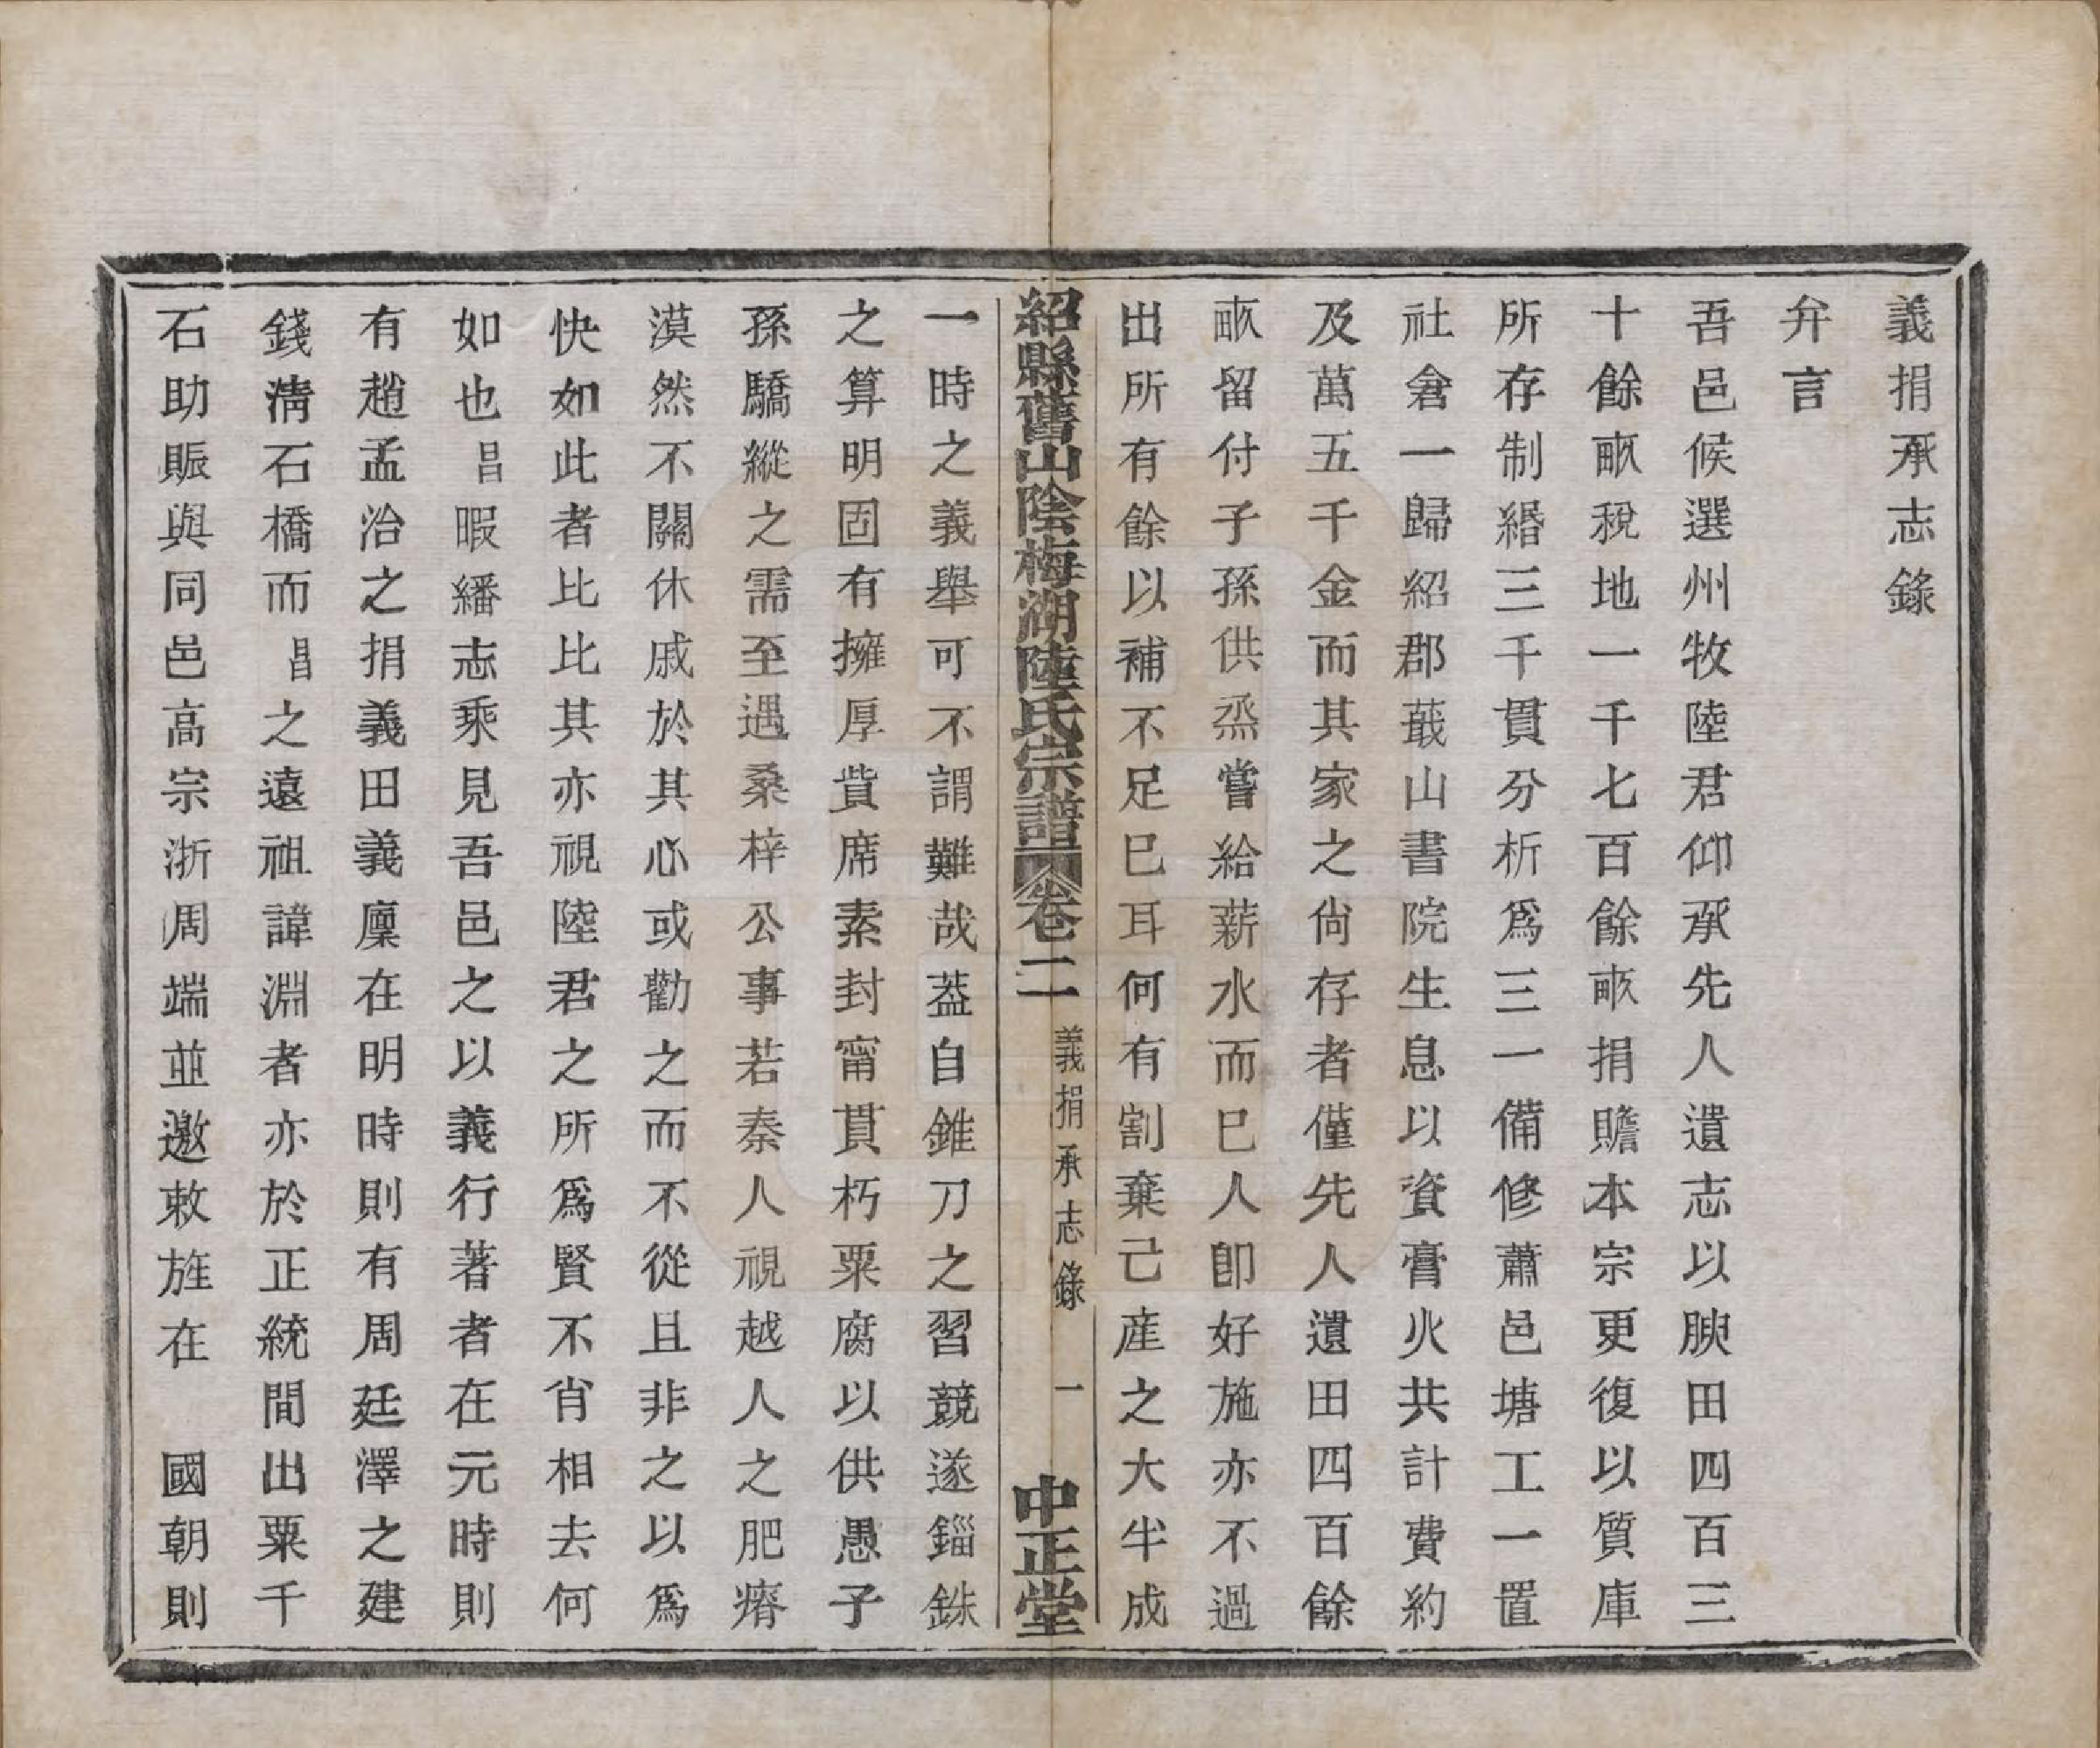 義捐承志錄
弁言
吾邑候選州牧陸君仰承先人遺志以腴田四百三
十餘畝稅地一千七百餘畝捐贍本宗更復以質庫
所存制緡三千貫分析爲三一備修蕭邑塘工一置
社倉一歸紹郡蕺山書院生息以資膏火共計費約
及萬五千金而其家之尙存者僅先人遺田四百餘
畝留付子孫供烝嘗給薪水而巳人卽好施亦不過
出所有餘以補不足巳耳何有割棄己產之大半成
紹縣舊山陰梅湖陸氏宗譜 卷二 義捐承志錄 一 中正堂
一時之義舉可不謂難哉葢自錐刀之習競遂錙銖
之算明固有擁厚貲席素封甯貫朽粟腐以供愚子
孫驕縱之需至遇桑梓公事若秦人視越人之肥瘠
漠然不關休戚於其心或勸之而不從且非之以爲
快如此者比比其亦視陸君之所爲賢不肖相去何
如也昌暇繙志乘見吾邑之以義行著者在元時則
有趙孟治之捐義田義廩在明時則有周廷澤之建
錢淸石橋而昌之遠祖諱淵者亦於正統間出粟千
石助賑與同邑高宗浙周端並邀敕旌在 國朝則